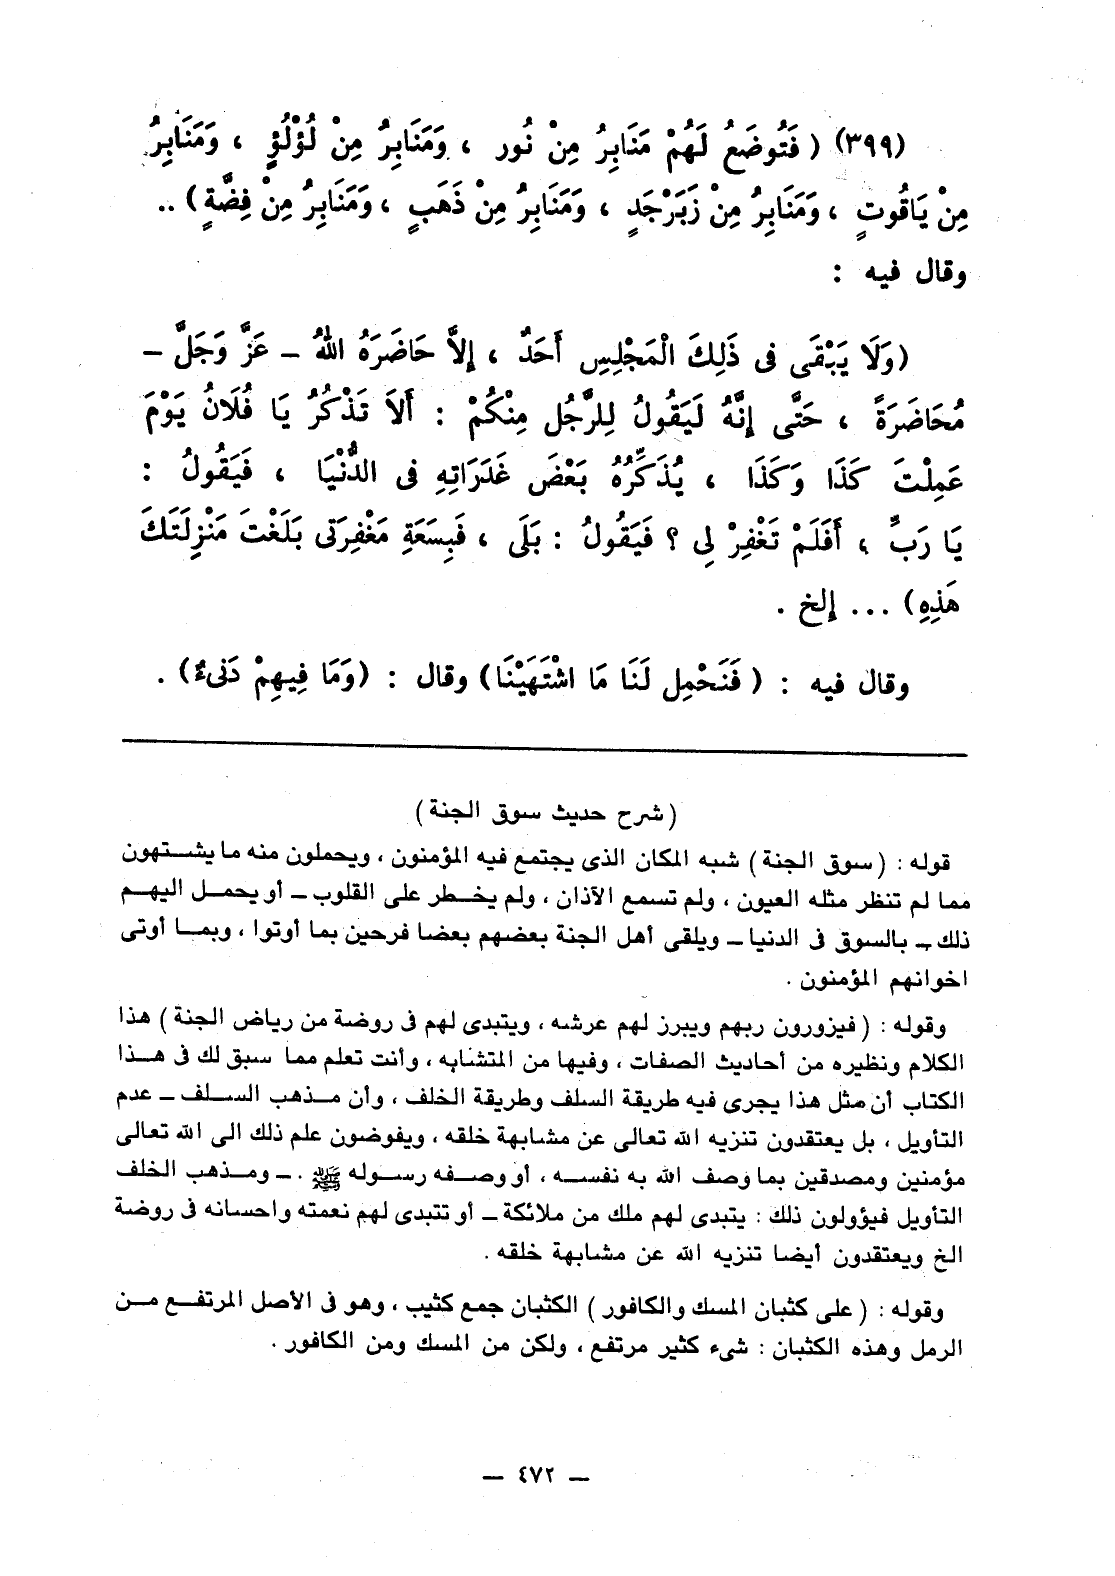 (٣٩٩) ( فَتُوضَعُ لَهُمْ مَنَابِرُ مِنْ نُور ، وَمَنَابِرُ مِنْ لُؤْلُؤٍ ، وَمَنَابِرُ
مِنْ يَاقُوتٍ ، وَمَنَابِرُ مِنْ زَبَرْجَدٍ ، وَمَنَابِرُ مِنْ ذَهَبٍ ، وَمَنَابِرُ مِنْ فِضَّةٍ ) ..
وقال فيه :
(وَلَا يَبْقَى فى ذَلِكَ الْمَجْلِسِ أَحَدٌ ، إِلاَّ حَاضَرَهُ اللهُ – عَزَّ وَجَلَّ –
مُحَاضَرَةً ، حَتَّى إِنَّهُ لَيَقُولُ لِلرَّجُلِ مِنْكُمْ : أَلاَ تَذْكُرُ يَا فُلَانُ يَوْمَ
عَمِلْتَ كَذَا وَكَذَا ، يُذَكِّرُهُ بَعْضَ غَدَرَاتِهِ فى الدُّنْيَا ، فَيَقُولُ :
يَا رَبِّ ، أَفَلَمْ تَغْفِرْ لِى ؟ فَيَقُولُ : بَلَى ، فَبِسَعَةِ مَغْفِرَتى بَلَغْتَ مَنْزِلَتَكَ
هَذِهِ) ... إلخ .
وقال فيه : ( فَنَحْمِل لَنَا مَا اشْتَهَيْنَا) وقال : (وَمَا فِيهِمْ دَنىءٌ) .
(شرح حديث سوق الجنة)
قوله : (سوق الجنة) شبه المكان الذى يجتمع فيه المؤمنون ، ويحملون منه ما يشتهون
مما لم تنظر مثله العيون ، ولم تسمع الآذان ، ولم يخطر على القلوب – أو يحمل اليهم
ذلك – بالسوق فى الدنيا – ويلقى أهل الجنة بعضهم بعضا فرحين بما أوتوا ، وبما أوتى
اخوانهم المؤمنون .
وقوله : (فيزورون ربهم ويبرز لهم عرشه ، ويتبدى لهم فى روضة من رياض الجنة) هذا
الكلام ونظيره من أحاديث الصفات ، وفيها من المتشابه ، وأنت تعلم مما سبق لك فى هذا
الكتاب أن مثل هذا يجرى فيه طريقة السلف وطريقة الخلف ، وأن مذهب السلف – عدم
التأويل ، بل يعتقدون تنزيه الله تعالى عن مشابهة خلقه ، ويفوضون علم ذلك الى الله تعالى
مؤمنين ومصدقين بما وصف الله به نفسه ، أو وصفه رسوله ﷺ . – ومذهب الخلف
التأويل فيؤولون ذلك : يتبدى لهم ملك من ملائكة – أو تتبدى لهم نعمته واحسانه فى روضة
الخ ويعتقدون أيضا تنزيه الله عن مشابهة خلقه .
وقوله : (على كثبان المسك والكافور) الكثبان جمع كثيب ، وهو فى الأصل المرتفع من
الرمل وهذه الكثبان : شىء كثير مرتفع ، ولكن من المسك ومن الكافور .
– ٤٧٢ –